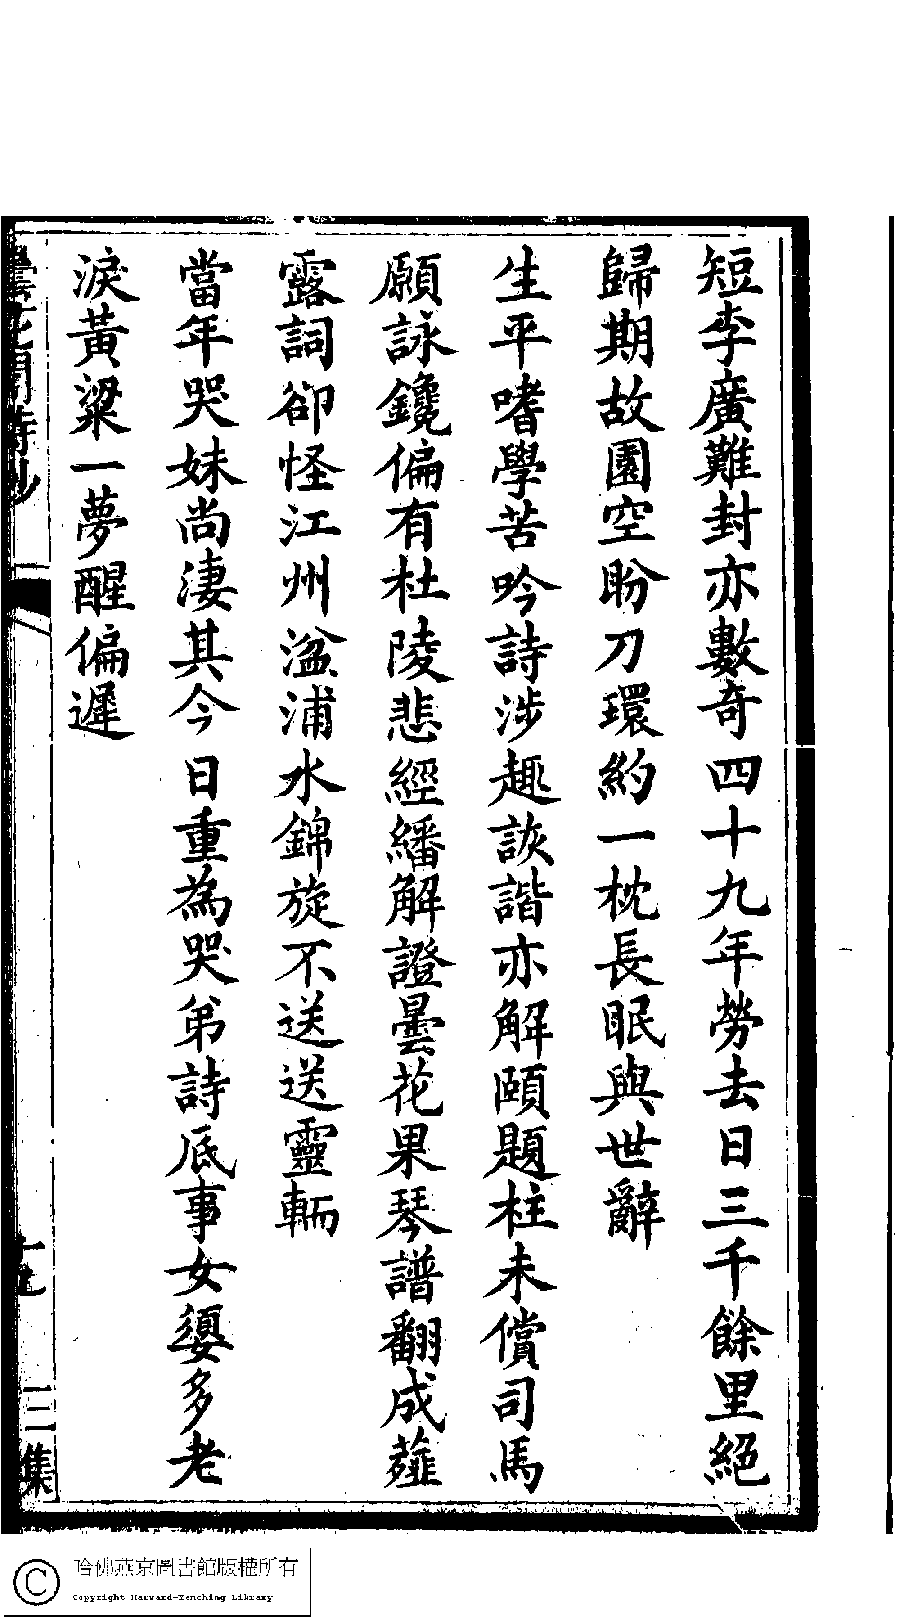 短李廣難封亦數奇四十九年勞去日三千餘里絕
歸期故園空盼刀環約一枕長眠與世辭
生平嗜學苦吟詩涉趣詼諧亦解頤題柱未償司馬
願詠鑱偏有杜陵悲經繙解證曇花果琴譜翻成薤
露詞卻怪江州湓浦水錦旋不送送靈輀
當年哭妹尚淒其今日重為哭弟詩底事女嬃多老
淚黃粱一夢醒偏遲
曇花閣詩鈔
十九
二集
哈佛燕京圖書館版權所有
Copyright Harvard-Yenching Library